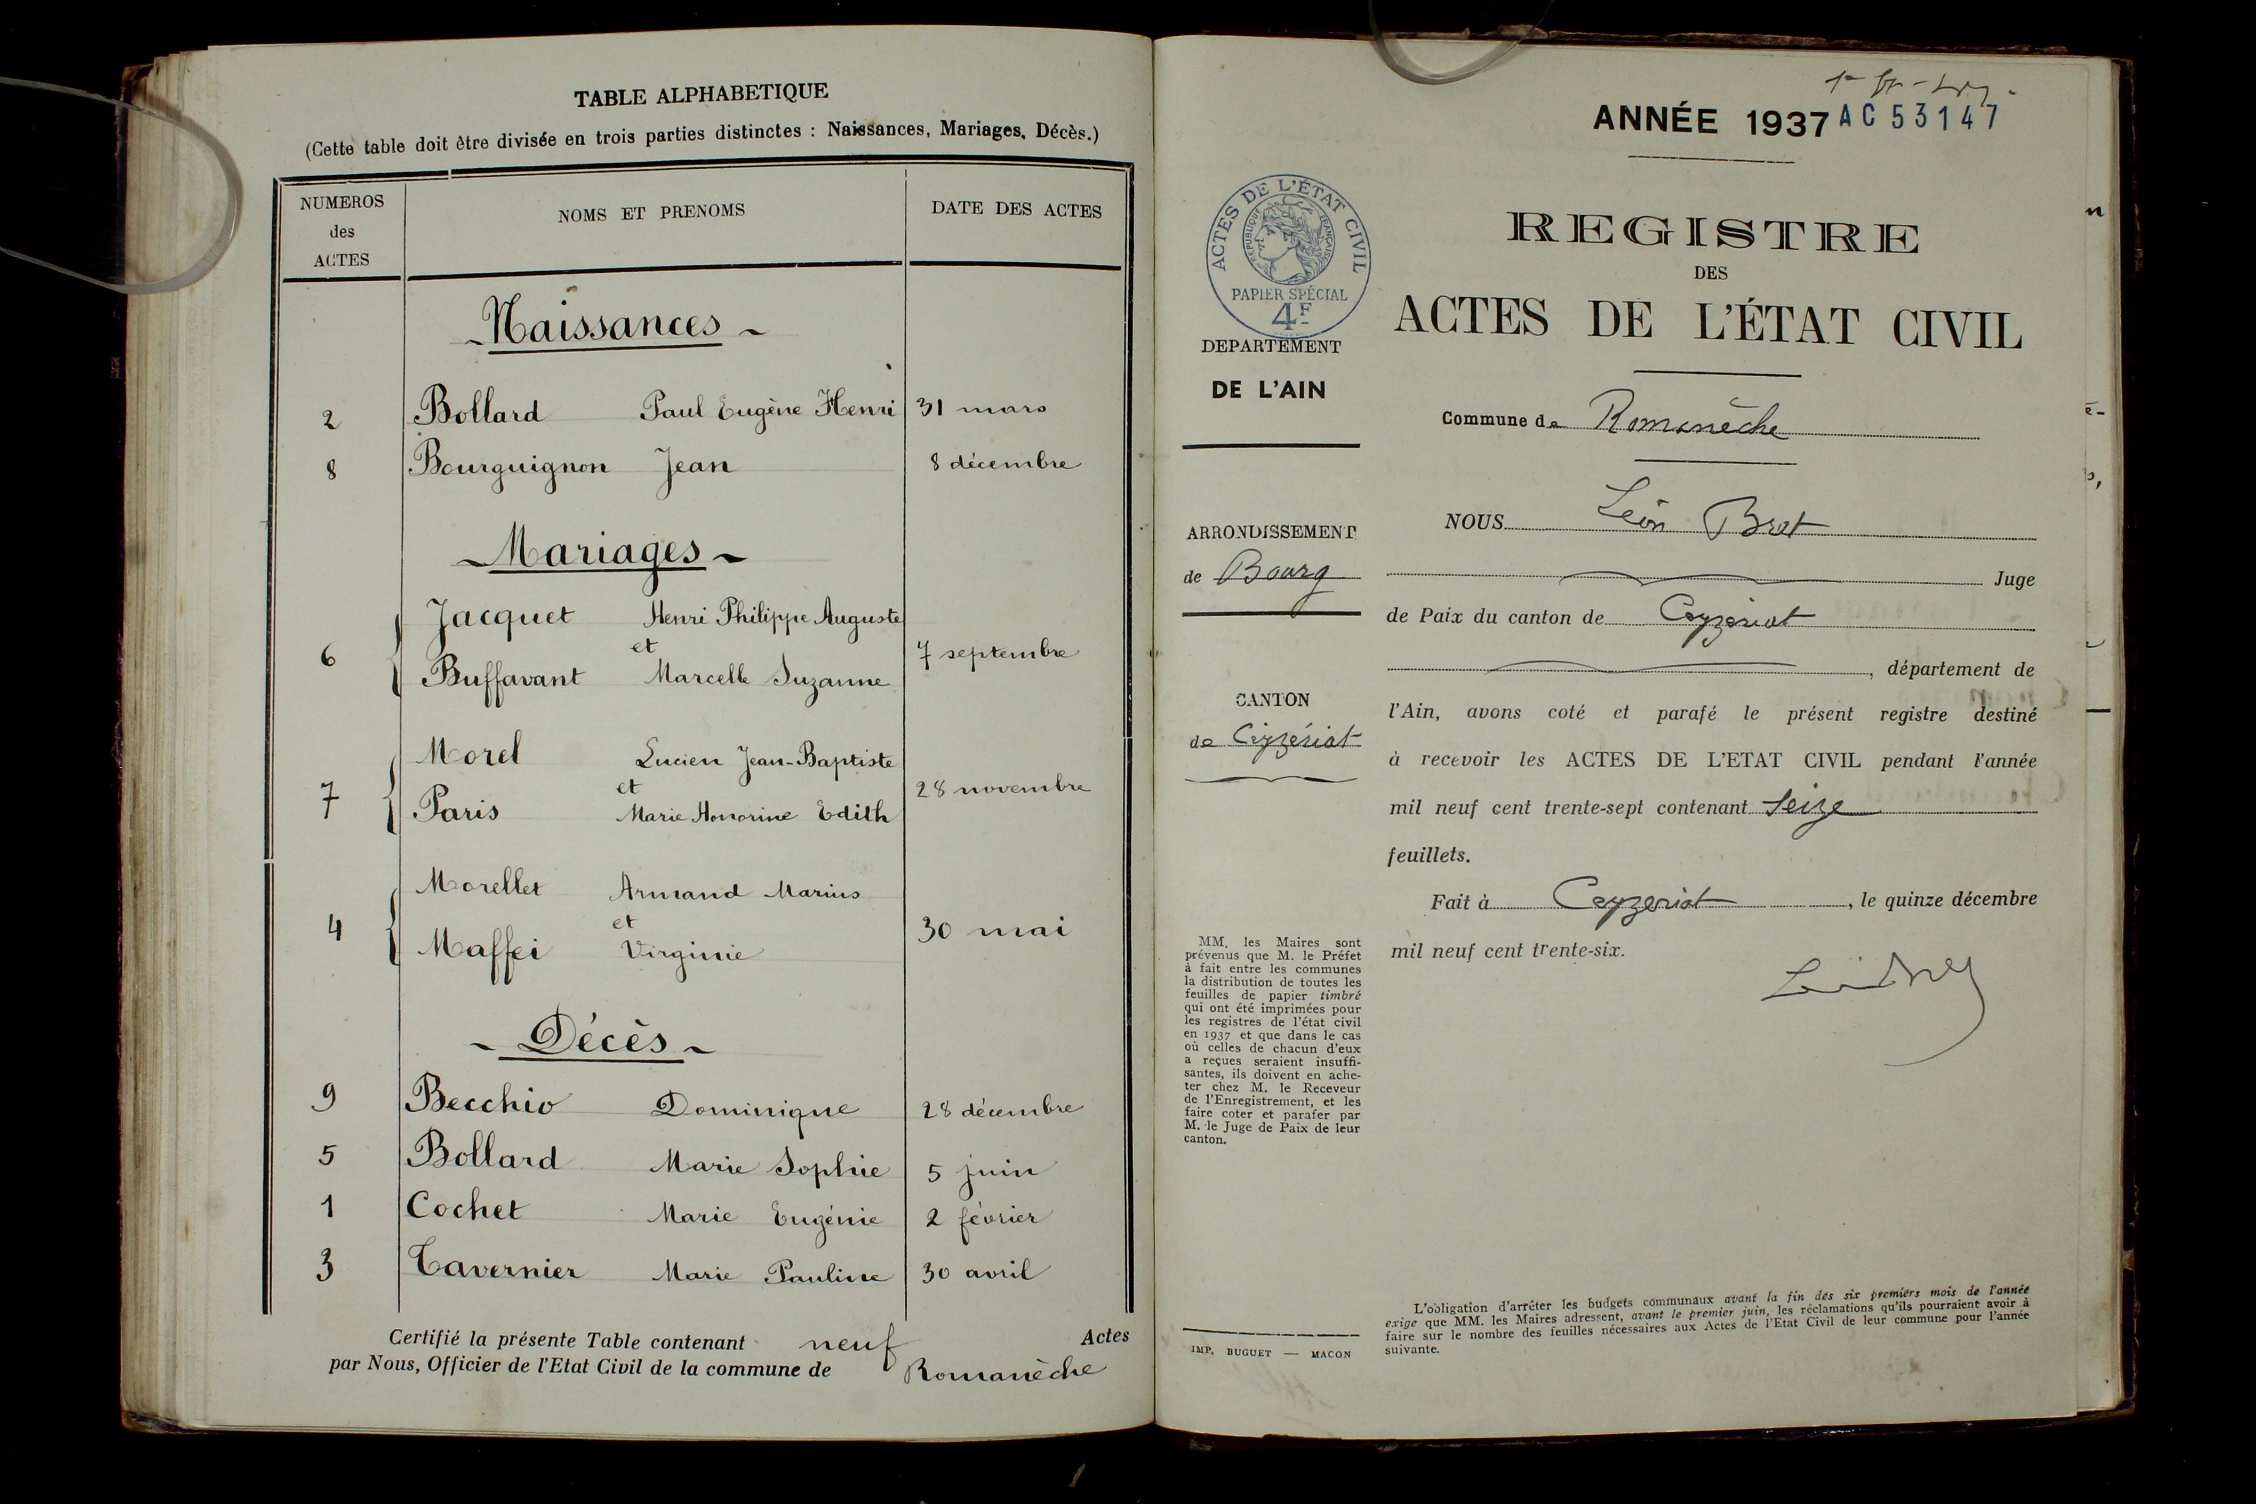 TABLE ALPHABETIQUE
(Cette table doit être divisée en trois parties distinctes : Naissances, Mariages, Décès.)
NUMEROS des ACTES
NOMS ET PRENOMS
DATE DES ACTES
Naissances
2 Bollard Paul Eugène Henri 31 mars
8 Bourguignon Jean 8 décembre
Mariages
Jacquet Henri Philippe Auguste
et
6 7 septembre
Buffavant Marcelle Suzanne
Morel Lucien Jean-Baptiste
et
7 28 novembre
Paris Marie Honorine Edith
Morellet Armand Marius
et
4 30 mai
Maffei Virginie
Décès
9 Becchio Dominique 28 décembre
5 Bollard Marie Sophie 5 juin
1 Cochet Marie Eugénie 2 février
3 Tavernier Marie Pauline 30 avril
Certifié la présente Table contenant neuf Actes
par Nous, Officier de l'Etat Civil de la commune de Romanèche
ANNÉE 1937 AC 53147
ACTES DE L'ÉTAT CIVIL
RÉPUBLIQUE FRANÇAISE
PAPIER SPÉCIAL
4F
DEPARTEMENT
DE L'AIN
ARRONDISSEMENT
de Bourg
CANTON
de Ceyzériat
MM. les Maires sont
prévenus que M. le Préfet
à fait entre les communes
la distribution de toutes les
feuilles de papier timbré
qui ont été imprimées pour
les registres de l'état civil
en 1937 et que dans le cas
où celles de chacun d'eux
a reçues seraient insuffi-
santes, ils doivent en ache-
ter chez M. le Receveur
de l'Enregistrement, et les
faire coter et parafer par
M. le Juge de Paix de leur
canton.
IMP. BUGUET — MACON
REGISTRE
DES
ACTES DE L'ÉTAT CIVIL
Commune de Romanèche
NOUS Léon Brot
Juge
de Paix du canton de Ceyzériat
, département de
l'Ain, avons coté et parafé le présent registre destiné
à recevoir les ACTES DE L'ETAT CIVIL pendant l'année
mil neuf cent trente-sept contenant Seize
feuillets.
Fait à Ceyzeriat, le quinze décembre
mil neuf cent trente-six.
L'obligation d'arrêter les budgets communaux avant la fin des six premiers mois de l'année
exige que MM. les Maires adressent, avant le premier juin, les réclamations qu'ils pourraient avoir à
faire sur le nombre des feuilles nécessaires aux Actes de l'Etat Civil de leur commune pour l'année
suivante.